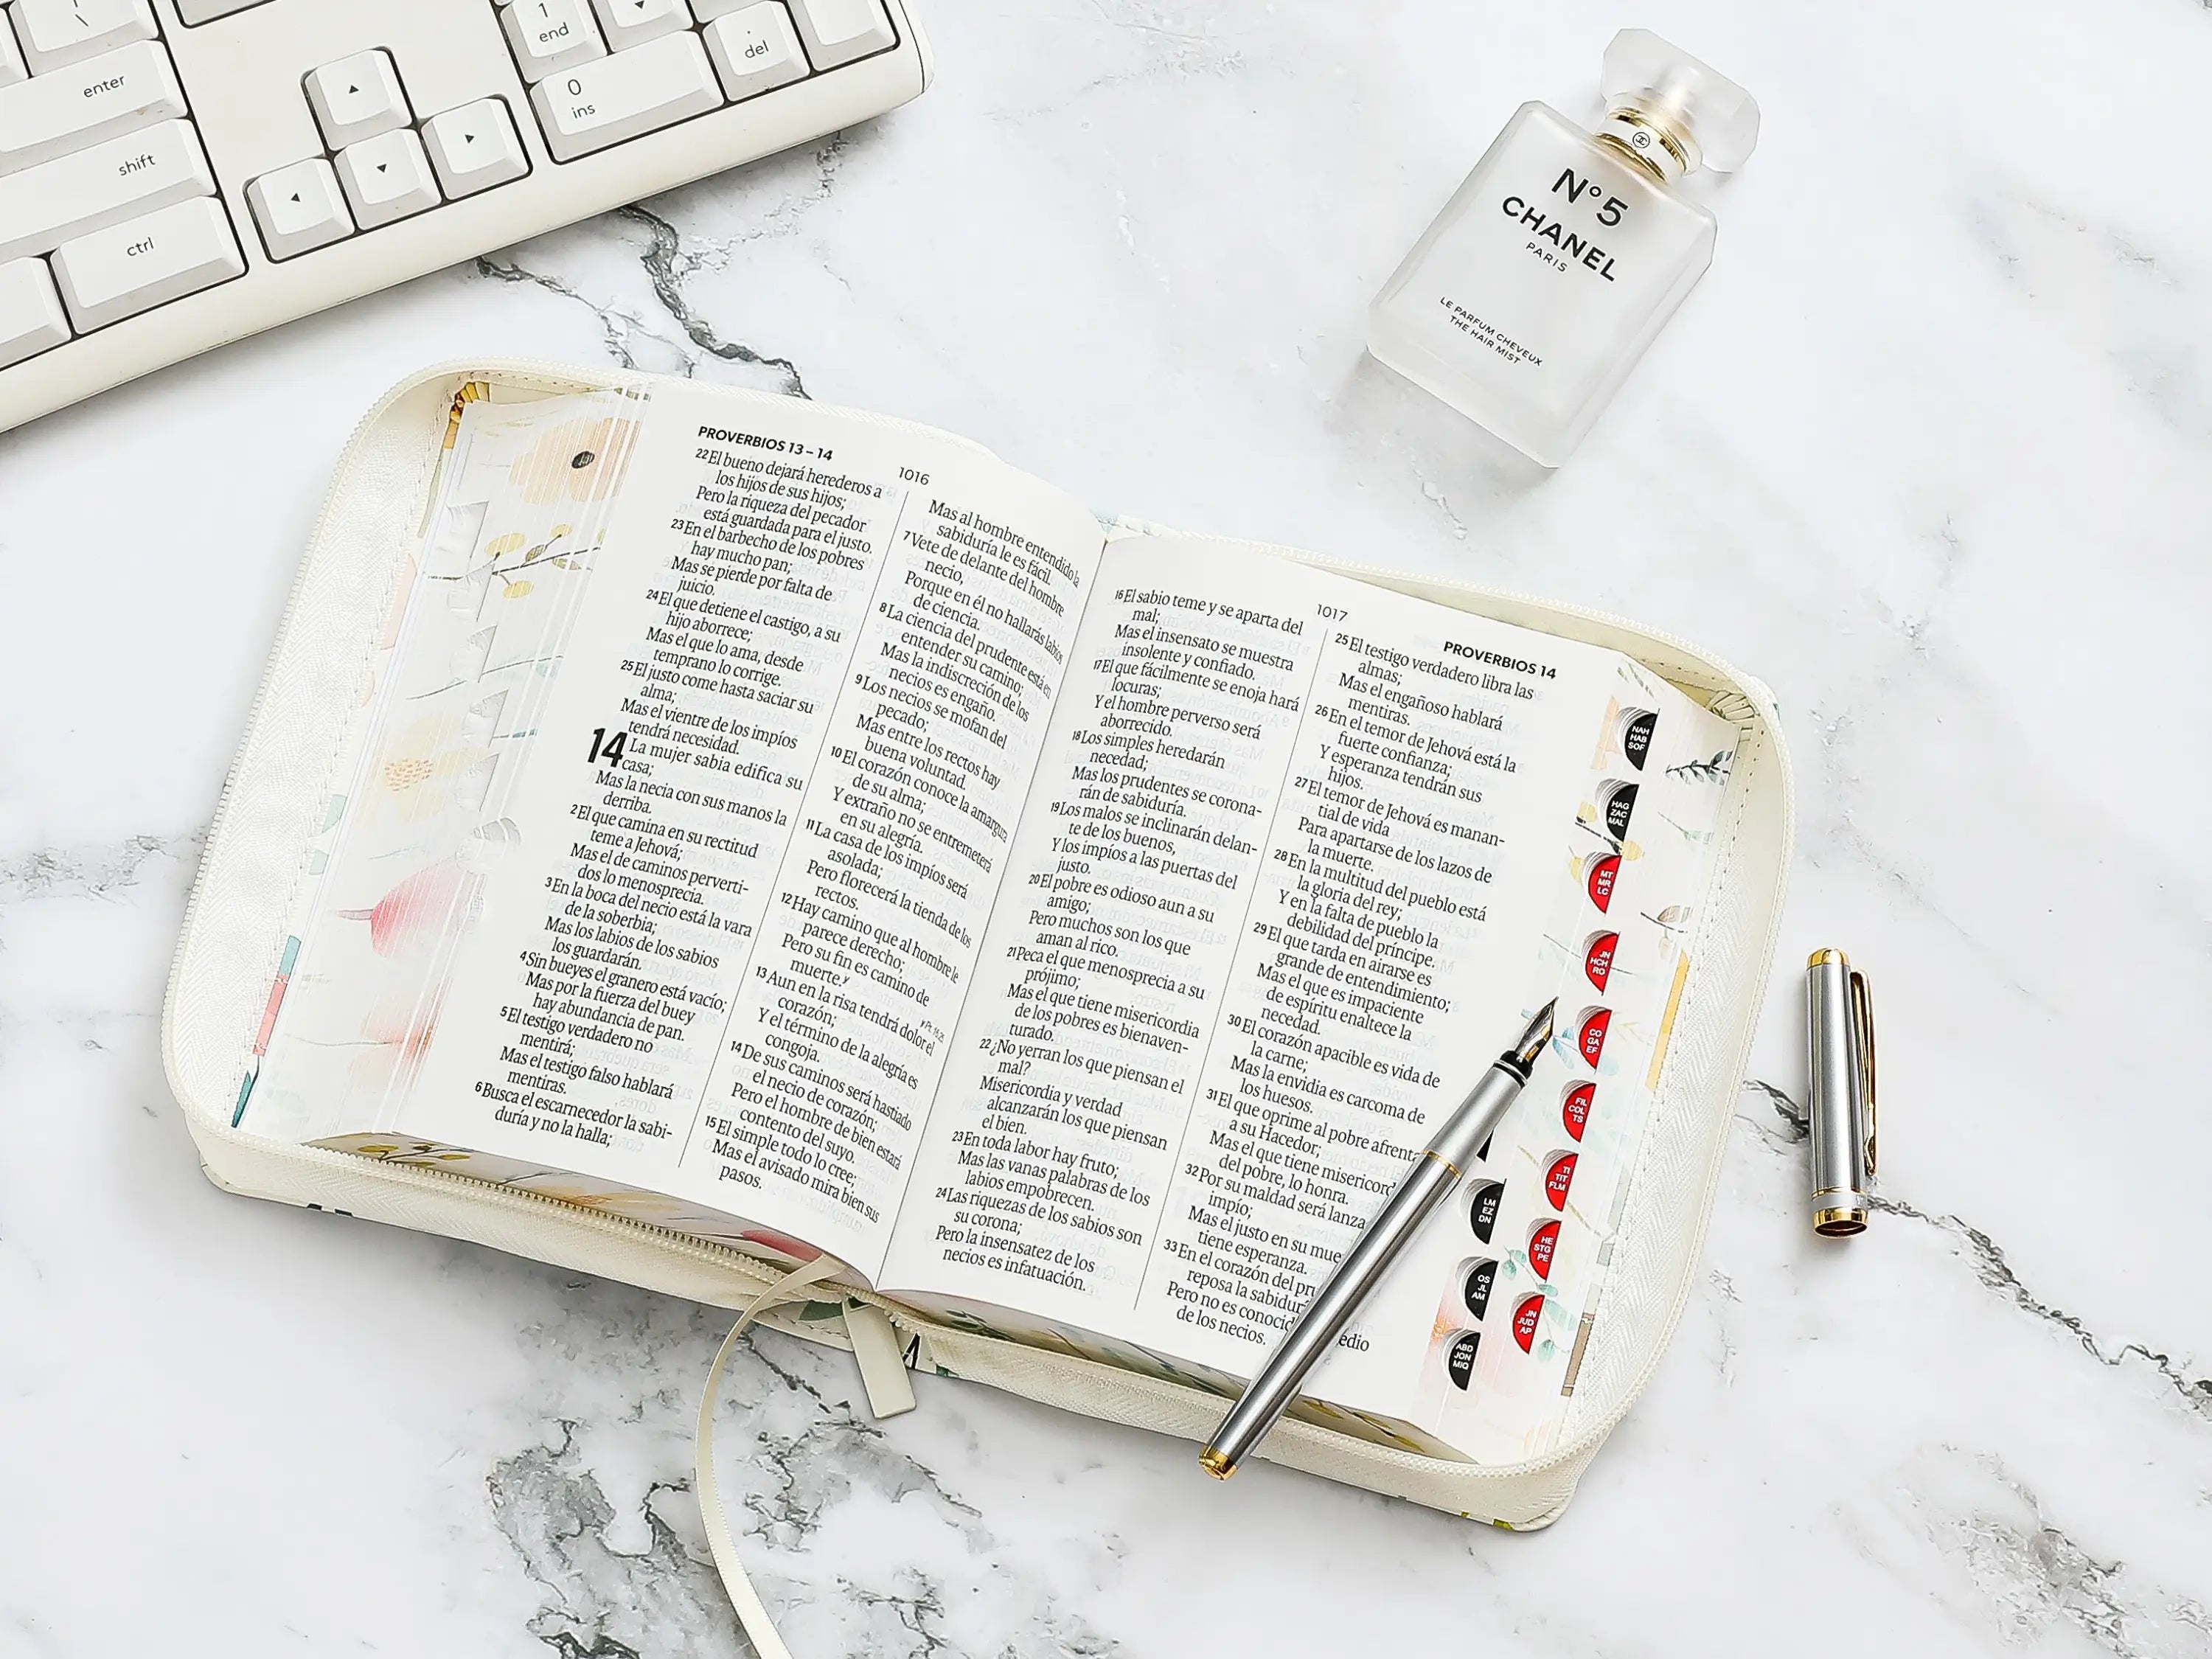 \
enter
shift
ctrl
1
end
0
ins
.
del
N°5
CHANEL
PARIS
LE PARFUM CHEVEUX
THE HAIR MIST
PROVERBIOS 13 – 14
1016
22 El bueno dejará herederos a
los hijos de sus hijos;
Pero la riqueza del pecador
está guardada para el justo.
23 En el barbecho de los pobres
hay mucho pan;
Mas se pierde por falta de
juicio.
24 El que detiene el castigo, a su
hijo aborrece;
Mas el que lo ama, desde
temprano lo corrige.
25 El justo come hasta saciar su
alma;
Mas el vientre de los impíos
tendrá necesidad.
14 La mujer sabia edifica su
casa;
Mas la necia con sus manos la
derriba.
2 El que camina en su rectitud
teme a Jehová;
Mas el de caminos perverti-
dos lo menosprecia.
3 En la boca del necio está la vara
de la soberbia;
Mas los labios de los sabios
los guardarán.
4 Sin bueyes el granero está vacío;
Mas por la fuerza del buey
hay abundancia de pan.
5 El testigo verdadero no
mentirá;
Mas el testigo falso hablará
mentiras.
6 Busca el escarnecedor la sabi-
duría y no la halla;
Mas al hombre entendido la
sabiduría le es fácil.
7 Vete de delante del hombre
necio,
Porque en él no hallarás labios
de ciencia.
8 La ciencia del prudente está en
entender su camino;
Mas la indiscreción de los
necios es engaño.
9 Los necios se mofan del
pecado;
Mas entre los rectos hay
buena voluntad.
10 El corazón conoce la amargura
de su alma;
Y extraño no se entremeterá
en su alegría.
11 La casa de los impíos será
asolada;
Pero florecerá la tienda de los
rectos.
12 Hay camino que al hombre le
parece derecho;
Pero su fin es camino de
muerte. y
13 Aun en la risa tendrá dolor el
corazón;
Y el término de la alegría es
congoja.
14 De sus caminos será hastiado
el necio de corazón;
Pero el hombre de bien estará
contento del suyo.
15 El simple todo lo cree;
Mas el avisado mira bien sus
pasos.
1017
PROVERBIOS 14
16 El sabio teme y se aparta del
mal;
Mas el insensato se muestra
insolente y confiado.
17 El que fácilmente se enoja hará
locuras;
Y el hombre perverso será
aborrecido.
18 Los simples heredarán
necedad;
Mas los prudentes se corona-
rán de sabiduría.
19 Los malos se inclinarán delan-
te de los buenos,
Y los impíos a las puertas del
justo.
20 El pobre es odioso aun a su
amigo;
Pero muchos son los que
aman al rico.
21 Peca el que menosprecia a su
prójimo;
Mas el que tiene misericordia
de los pobres es bienaven-
turado.
22 ¿No yerran los que piensan el
mal?
Misericordia y verdad
alcanzarán los que piensan
el bien.
23 En toda labor hay fruto;
Mas las vanas palabras de los
labios empobrecen.
24 Las riquezas de los sabios son
su corona;
Pero la insensatez de los
necios es infatuación.
25 El testigo verdadero libra las
almas;
Mas el engañoso hablará
mentiras.
26 En el temor de Jehová está la
fuerte confianza;
Y esperanza tendrán sus
hijos.
27 El temor de Jehová es manan-
tial de vida
Para apartarse de los lazos de
la muerte.
28 En la multitud del pueblo está
la gloria del rey;
Y en la falta de pueblo la
debilidad del príncipe.
29 El que tarda en airarse es
grande de entendimiento;
Mas el que es impaciente
de espíritu enaltece la
necedad.
30 El corazón apacible es vida de
la carne;
Mas la envidia es carcoma de
los huesos.
31 El que oprime al pobre afrenta
a su Hacedor;
Mas el que tiene misericord
del pobre, lo honra.
32 Por su maldad será lanza
impío;
Mas el justo en su mue
tiene esperanza.
33 En el corazón del pr
reposa la sabidur
Pero no es conocid edio
de los necios.
NAH
HAB
SOF
HAG
ZAC
MAL
MT
MR
LC
JN
HCH
RO
CO
GA
EF
FIL
COL
TS
TI
TIT
FLM
HE
STG
PE
JN
JUD
AP
LM
EZ
DN
OS
JL
AM
ABD
JON
MIQ